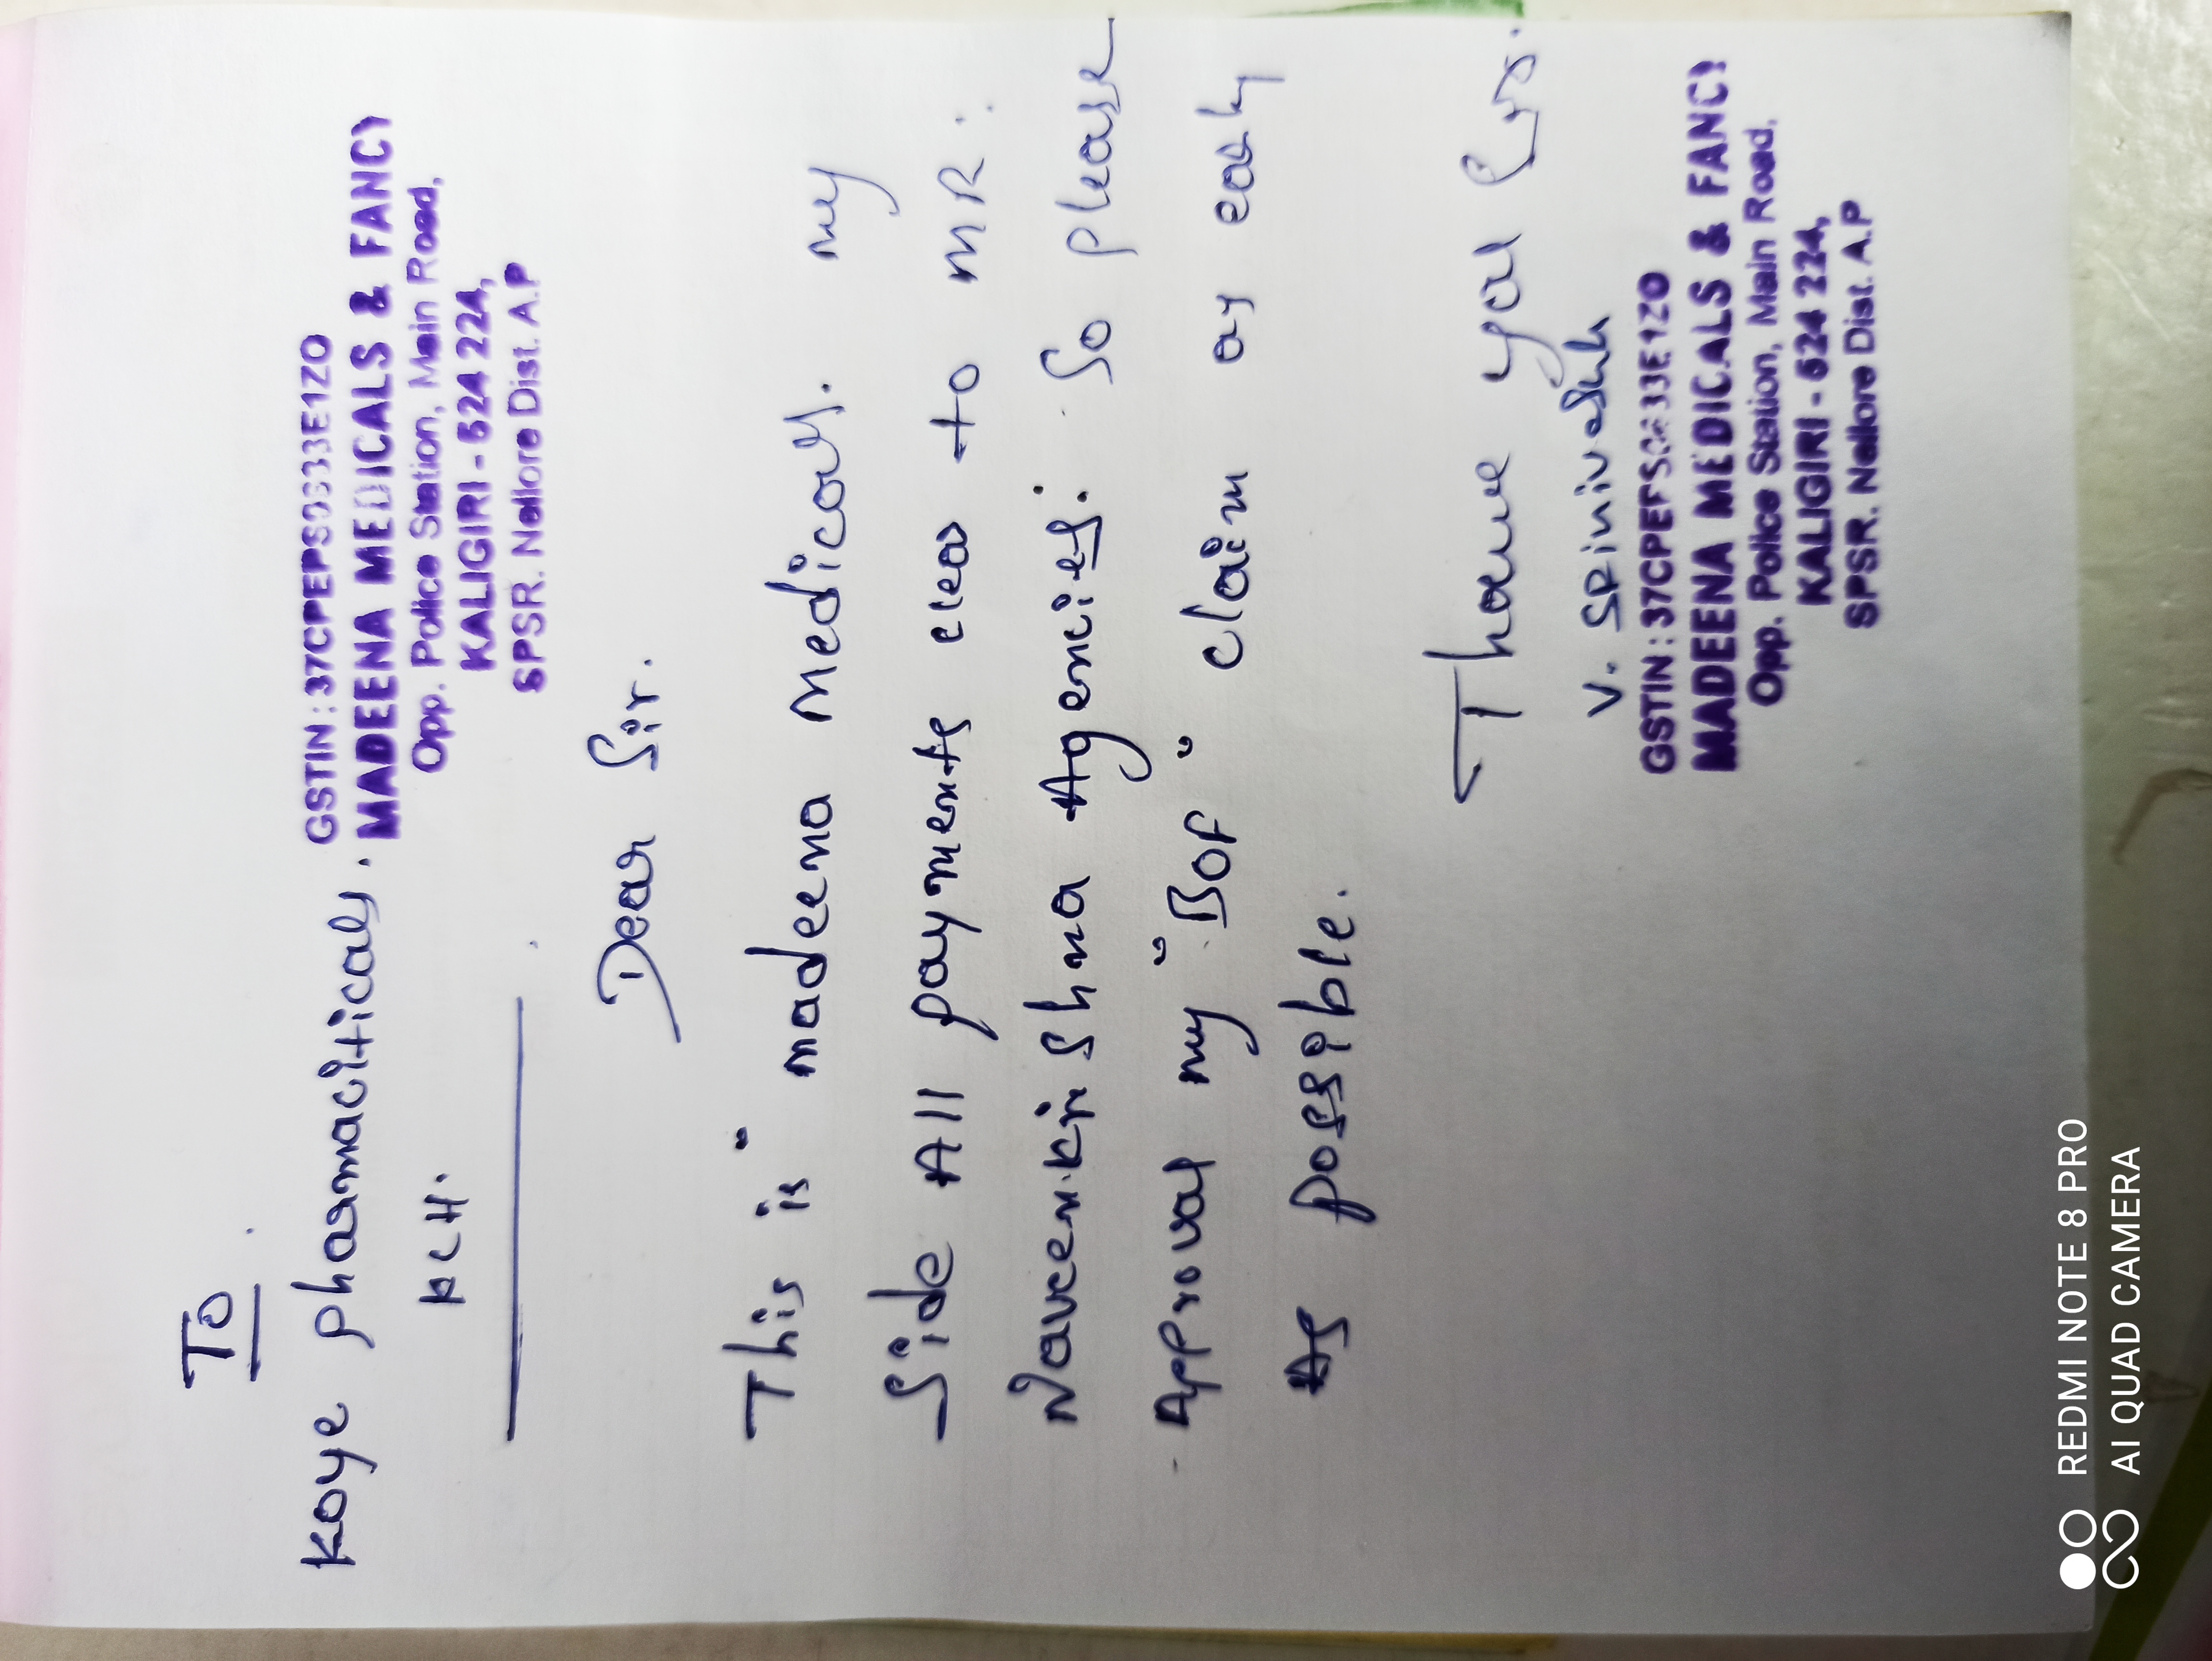 To
Koye pharmaciticals.
HCH.
GSTIN : 37CPEPS
MADEENA MEDICALS & FANCY
Opp. Police Station, Main Road,
KALIGIRI - 524 224,
SPSR. Nellore Dist. A.P
Dear Sir.
This is " madeena Medicals. my
Side All payments clear to MR.
Naveenkrishna Agencies. So please
Approval my "Bof" claim as early
As possible.
Thank you Sir.
V. SRinivasulu
GSTIN : 37CPEPS 33E1ZO
MADEENA MEDICALS & FANCY
Opp. Police Station, Main Road,
KALIGIRI - 524 224,
SPSR. Nellore Dist. A.P
REDMI NOTE 8 PRO
AI QUAD CAMERA